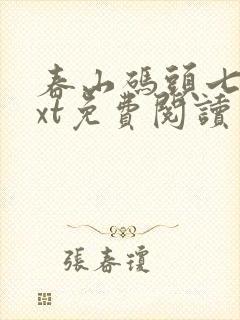 春山碼頭七
xt免費閱讀
張春瓊